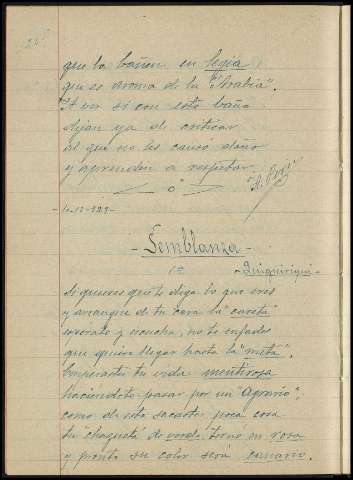 que la bañen en legia
que es aroma de la "Arabia".
A ver si con este baño
dejan ya de criticar
al que no les causó daño
y aprendan a respetar.
o
- Semblanza -
1ª
- Quiquiriqui -
Si quieres que te diga lo que eres
y arranque de tu cara la "careta"
esperate y escucha, no te enfades
que quiero llegar hasta la "meta".
Empezaste tu vida mentirosa
haciéndote pasar por un "Agrario",
como de esto sacaste poca cosa
tu "chaqueta" de verde, tornó en rosa
y pronto su color será canario.